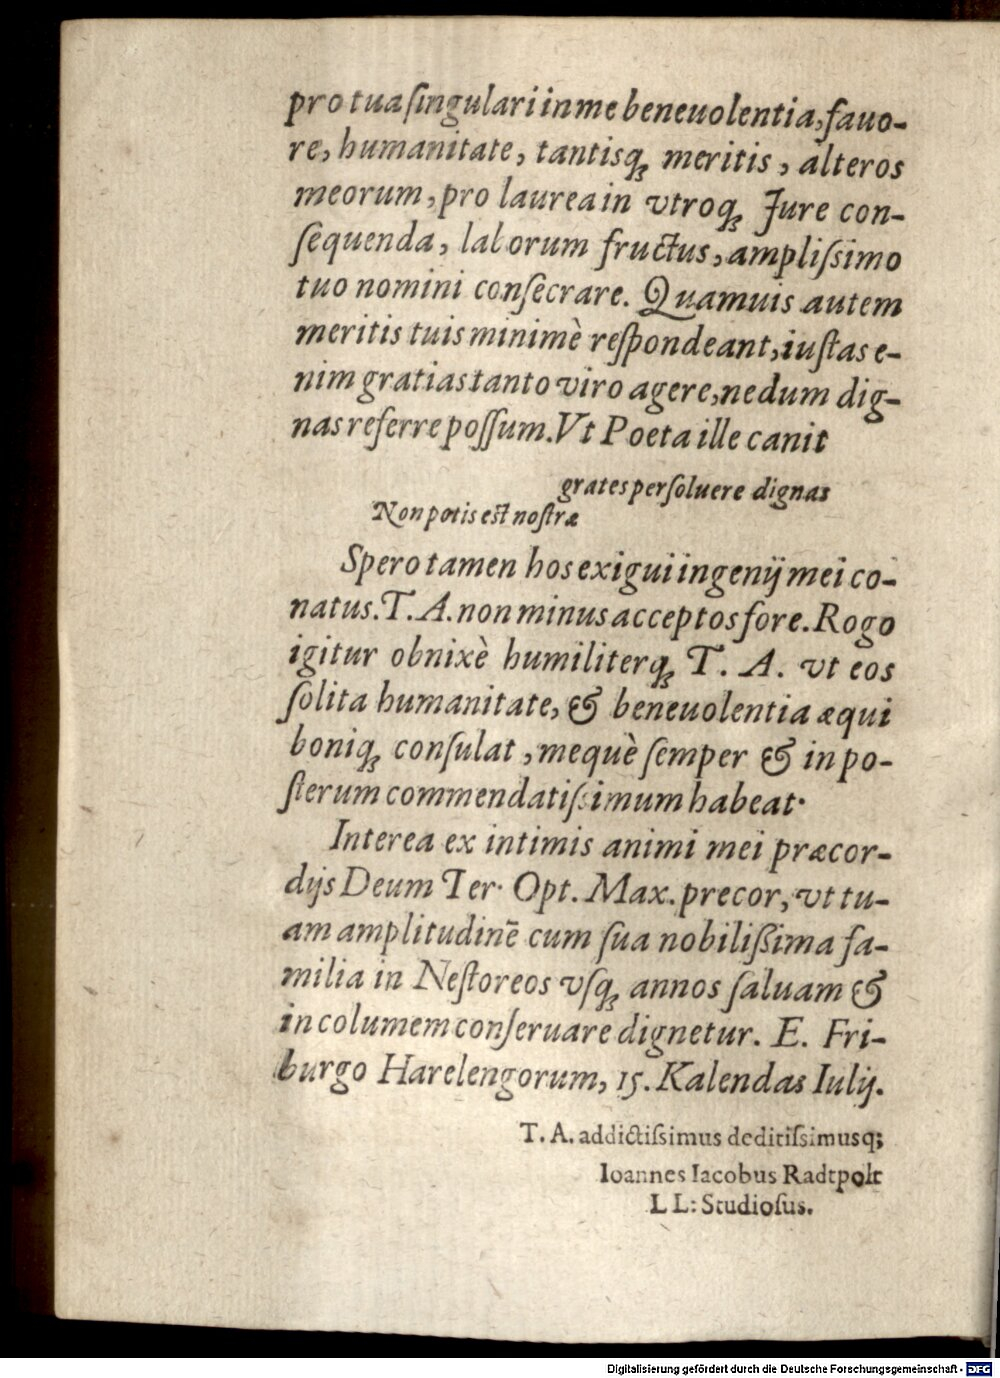 pro tua ſingulari in me beneuolentia, fauo-
re, humanitate, tantisq́ꝫ meritis, alteros
meorum, pro laurea in vtroq́ꝫ Jure con-
ſequenda, laborum fructus, ampliſsimo
tuo nomini conſecrare. Quamuis autem
meritis tuis minimè reſpondeant, iuſtas e-
nim gratias tanto viro agere, nedum dig-
nas referre poſſum. Vt Poeta ille canit
grates perſoluere dignas
Non potis est noſtræ
Spero tamen hos exigui ingenij mei co-
natus. T. A. non minus acceptos fore. Rogo
igitur obnixè humiliterq́ꝫ T. A. vt eos
ſolita humanitate, & beneuolentia æqui
boniq́ꝫ conſulat, mequè ſemper & in po-
ſterum commendatiſsimum habeat.
Interea ex intimis animi mei præcor-
dijs Deum Ter. Opt. Max. precor, vt tu-
am amplitudinē cum ſua nobilißima fa-
milia in Neſtoreos vſq́ꝫ annos ſaluam &
incolumem conſeruare dignetur. E. Fri-
burgo Harelengorum, 15. Kalendas Iulij.
T. A. addictiſsimus deditiſsimusq;
Ioannes Iacobus Radtpolt
L L: Studioſus.
Digitalisierung gefördert durch die Deutsche Forschungsgemeinschaft - DFG